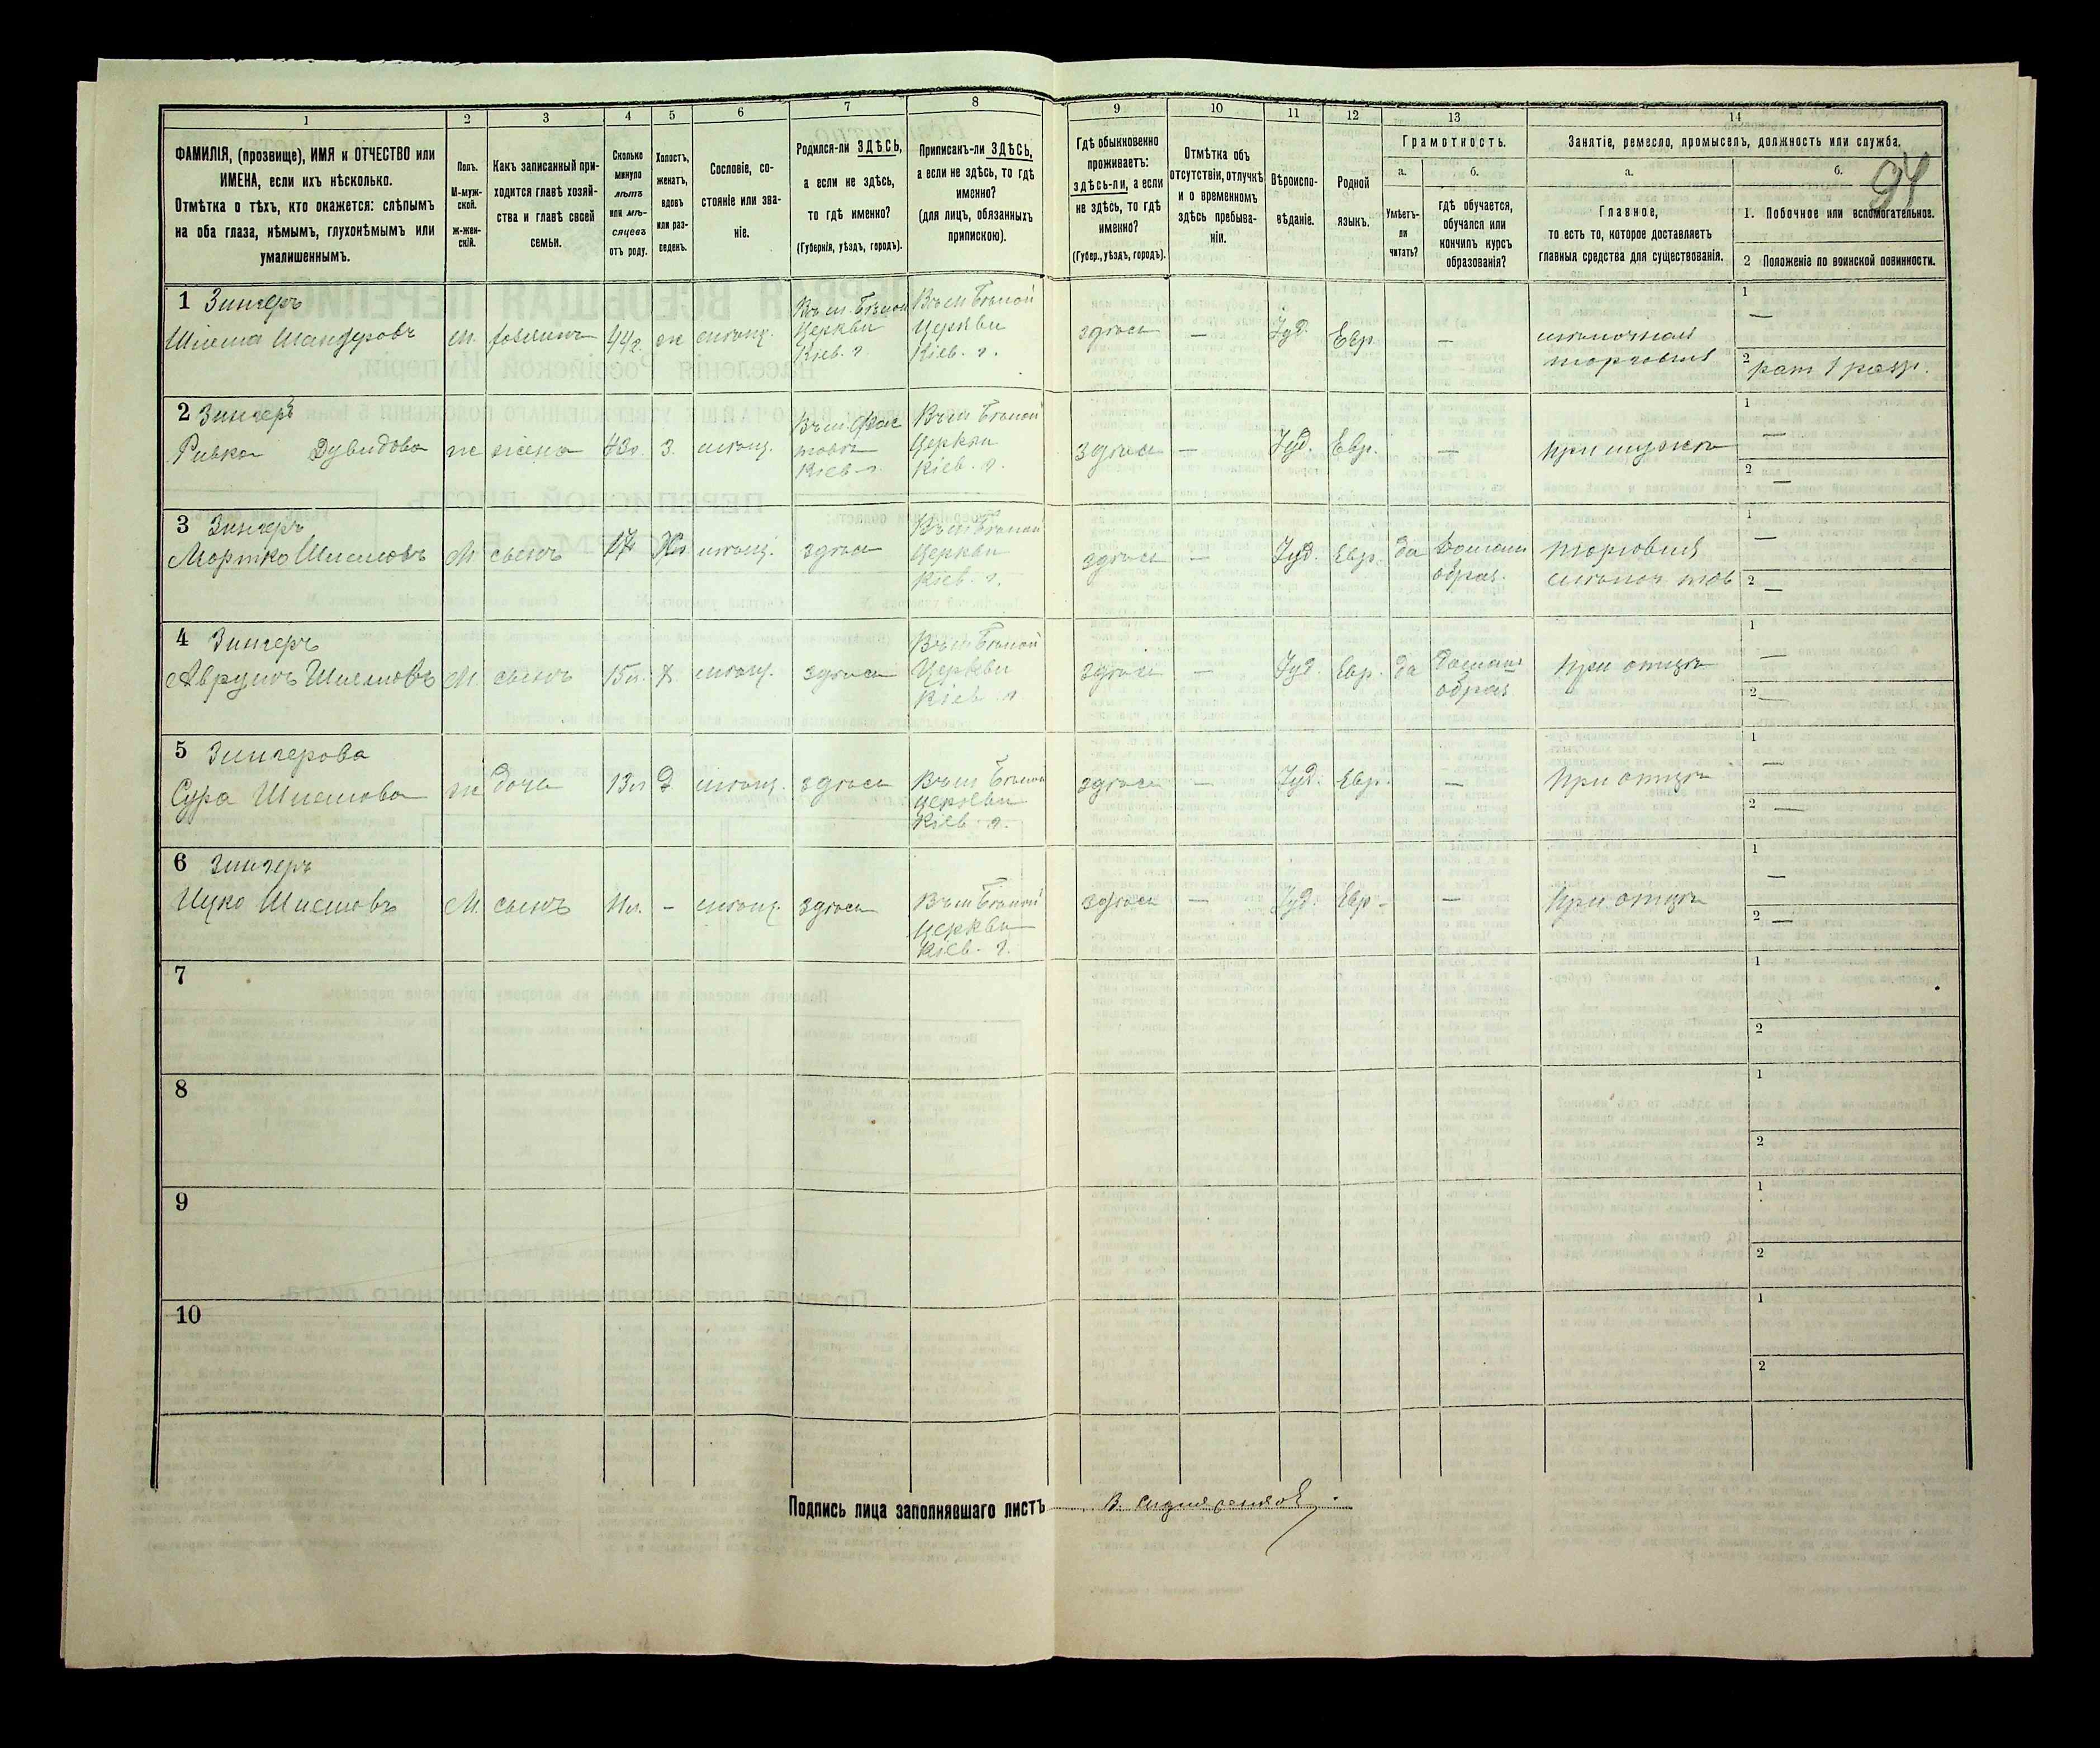 1
2
3
4
5
6
7
8
9
10
11
12
13
14
ФАМИЛІЯ, (прозвище), ИМЯ и ОТЧЕСТВО или
ИМЕНА, если ихъ нѣсколько.
Отмѣтка о тѣхъ, кто окажется: слѣпымъ
на оба глаза, нѣмымъ, глухонѣмымъ или
умалишеннымъ.
Полъ.
М-муж-
ской.
Ж-жен-
скій.
Какъ записанный при-
ходится главѣ хозяй-
ства и главѣ своей
семьи.
Сколько
минуло
лѣтъ
или мѣ-
сяцевъ
отъ роду.
Холостъ,
женатъ,
вдовъ
или раз-
веденъ.
Сословіе, со-
стояніе или зва-
ніе.
Родился-ли ЗДѢСЬ,
а если не здѣсь,
то гдѣ именно?
(Губернія, уѣздъ, городъ).
Приписанъ-ли ЗДѢСЬ,
а если не здѣсь, то гдѣ
именно?
(для лицъ, обязанныхъ
припискою).
Гдѣ обыкновенно
проживаетъ:
здѣсь-ли, а если
не здѣсь, то гдѣ
именно?
(Губер., уѣздъ, городъ).
Отмѣтка объ
отсутствіи, отлучкѣ
и о временномъ
здѣсь пребыва-
ніи.
Вѣроиспо-
вѣданіе.
Родной
языкъ.
Грамотность.
а.
Умѣетъ-
ли
читать?
б.
гдѣ обучается,
обучался или
кончилъ курсъ
образованія?
Занятіе, ремесло, промыселъ, должность или служба.
а.
Главное,
то есть то, которое доставляетъ
главныя средства для существованія.
б.
94
1. Побочное или вспомогательное.
2 Положеніе по воинской повинности.
1 Зингеръ
Шлема Шандеровъ
м.
хозяинъ
44 г.
ж
мѣщ.
Въ м. Бѣлой
Церкви
Кіев. г
Въ м Бѣлой
Церкви
Кіев. г.
здѣсь
—
Іуд.
Евр
—
мѣлочная
торговля
1 —
2 рат 1 разр.
2 Зингеръ
Ривка Дувидова
ж
жена
43 г.
З.
мѣщ.
Въ м. Фас
товѣ
Кіев. г.
Въ м Бѣлой
Церкви
Кіев. г.
здѣсь
—
Іуд.
Евр.
—
при мужѣ
1 —
2 —
3 Зингеръ
Мортко Шлемовъ
М
сынъ
17
Х
мѣщ.
здѣсь
Въ м Бѣлой
Церкви
Кіев. г.
здѣсь
—
Іуд.
Евр.
да
домашн
образ.
торговля
мѣлоч тов
1 —
2 —
4 Зингеръ
Аврумъ Шлемовъ
М
сынъ
15 л.
х
мѣщ.
здѣсь
Въ м Бѣлой
Церкви
Кіев г
здѣсь
—
Іуд.
Евр.
да
домашн
образ
при отцѣ
1 —
2 —
5 Зингерова
Сура Шлемова
ж
дочь
13 л
Д
мѣщ.
здѣсь
Въ м Бѣлой
Церкви
Кіев г.
здѣсь
—
Іуд.
Евр.
—
при отцѣ
1 —
2 —
6 Зингеръ
Ицко Шлемовъ
М.
сынъ
11 л.
-
мѣщ.
здѣсь
Въ м Бѣлой
Церкви
Кіев. г.
здѣсь
—
Іуд.
Евр.
—
при отцѣ
1 —
2 —
7
1
2
8
1
2
9
1
2
10
1
2
Подпись лица заполнявшаго листъ